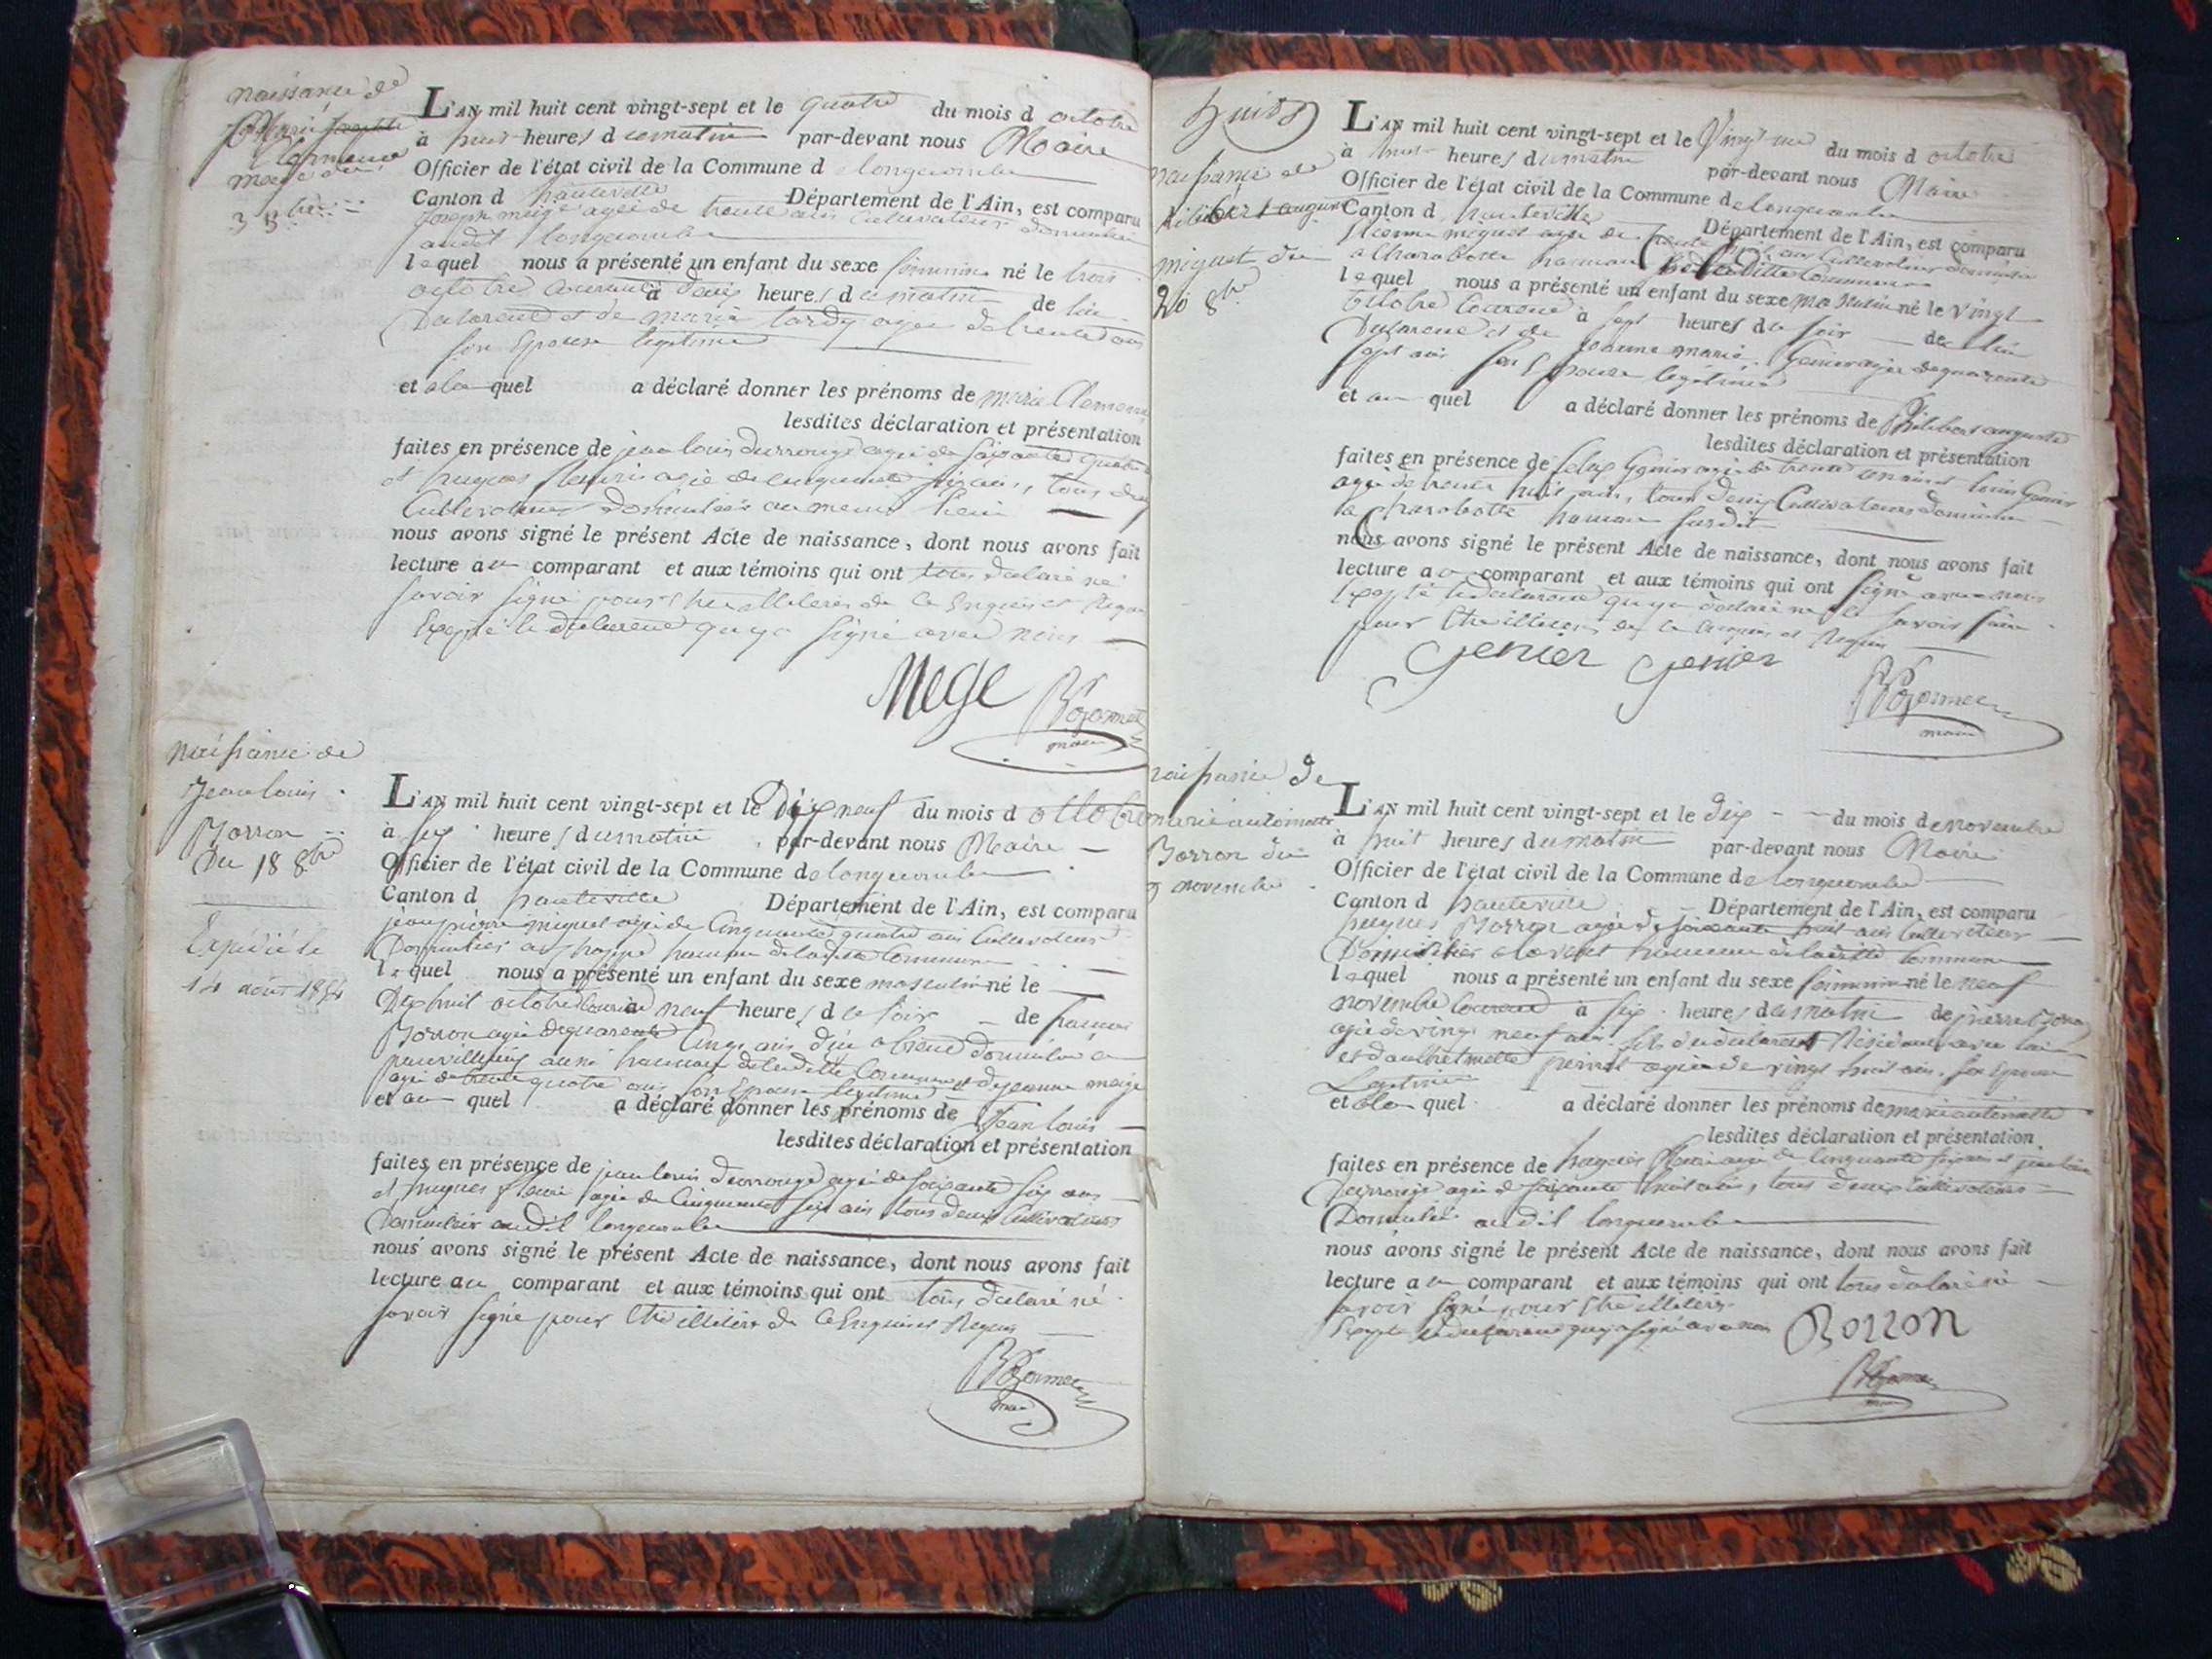 naissance de
Marie
Clemence
mege du
3 8bre
L'AN mil huit cent vingt-sept et le quatre du mois d octobre
à huit heures d u matin par-devant nous Maire
Officier de l'état civil de la Commune d longecombe
Canton d hauteville Département de l'Ain, est comparu
joseph mege agé de trente ans Cultivateur domicilié
audit longecombe
le quel nous a présenté un enfant du sexe feminin né le trois
octobre courant à deux heures d u matin de lui
Declarent et de marie tardy agée de trente ans
son Epouse legitime
et a la quel a déclaré donner les prénoms de marie Clemence
lesdites déclaration et présentation
faites en présence de jean louis durrouge agé de soixante quatre
et hugues fleuri agé de cinquante six ans, tous deux
Cultivateurs domiciliés au meme lieu
nous avons signé le présent Acte de naissance, dont nous avons fait
lecture au comparant et aux témoins qui ont tous declaré ne
savoir signé pour etre illiteres de ce Enquis et Requis
Excepté le declarent qu y a signé avec nous
Mege
maire
naissance de
Jean louis
Borron
du 18 8bre
Expédié le
14 août 1854
L'AN mil huit cent vingt-sept et le Dix neuf du mois d octobre
à six heures d u matin par-devant nous Maire
Officier de l'état civil de la Commune de longecombe
Canton d hauteville Département de l'Ain, est comparu
jean pierre miguet agé de Cinquante quatre ans Cultivateur
Domicilier a hameau de ladite Commune
le quel nous a présenté un enfant du sexe masculin né le
Dix huit octobre courant à neuf heures d u soir de
Borron agé de quarente Cinq ans domicilié
aussi hameau de ladite Commune et de jeanne mege
agée de trente quatre ans son Epouse legitime
et au quel a déclaré donner les prénoms de Jean louis
lesdites déclaration et présentation
faites en présence de jean louis durrouge agé de soixante six ans
et hugues fleuri agé de Cinquante six ans tous deux Cultivateurs
Domiciliés audit longecombe
nous avons signé le présent Acte de naissance, dont nous avons fait
lecture au comparant et aux témoins qui ont tous declaré ne
savoir signé pour etre illitere de ce Enquis et Requis
maire
huit
naissance de
Philibert auguste
miguet du
20 8bre
L'AN mil huit cent vingt-sept et le Vingt un du mois d octobre
à huit heures d u matin par-devant nous Maire
Officier de l'état civil de la Commune de longecombe
Canton d hauteville Département de l'Ain, est comparu
Etienne miguet agé de trente huit ans Cultivateur domicilié
a Charabotte hameau de ladite Commune
le quel nous a présenté un enfant du sexe masculin né le vingt
octobre courent à sept heures d u soir de lui
Declarent et de jeanne marie Genier agée de quarente
sept ans son Epouse legitime
et au quel a déclaré donner les prénoms de Philibert auguste
lesdites déclaration et présentation
faites en présence de felix Genier agé de trente un ans et louis Genier
agé de trente huit ans, tous deux Cultivateurs domiciliés
a Charabotte hameau susdit
nous avons signé le présent Acte de naissance, dont nous avons fait
lecture au comparant et aux témoins qui ont signé avec nous
Excepté le declarent qu y a declaré ne le savoir faire
pour etre illitere de ce Enquis et Requis
Genier Genier
maire
naissance de
marie antoinette
Borron du
9 novembre
L'AN mil huit cent vingt-sept et le dix du mois de novembre
à huit heures d u matin par-devant nous Maire
Officier de l'état civil de la Commune de longecombe
Canton d hauteville Département de l'Ain, est comparu
hugues Borron agé de soixante huit ans Cultivateur
Domicilier hameau de ladite Commune
le quel nous a présenté un enfant du sexe feminin né le neuf
novembre courent à six heures d u matin de pierre Borron
agé de vingt neuf ans fils du declarent Residant avec lui
et d'anthelmette perret agée de vingt huit ans son Epouse
Legitime
et a la quel a déclaré donner les prénoms de marie antoinette
lesdites déclaration et présentation
faites en présence de hugues fleuri agé de Cinquante six ans et jean louis
Durrouge agé de soixante huit ans, tous deux Cultivateurs
Domicilié audit longecombe
nous avons signé le présent Acte de naissance, dont nous avons fait
lecture au comparant et aux témoins qui ont tous declaré ne
savoir signé pour etre illiteres
Excepté le declarent qu y a signé avec nous Borron